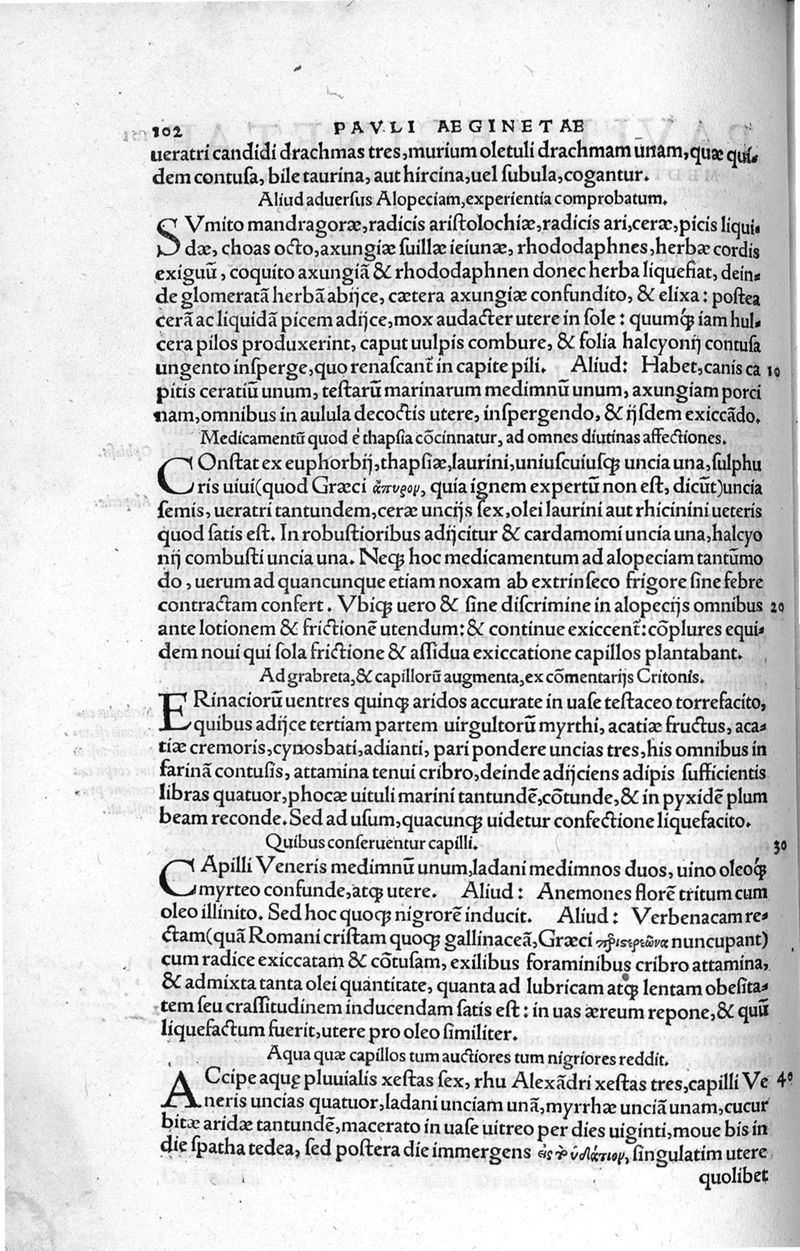 102 PAVLI AEGINETAE
ueratri candidi drachmas tres, murium oletuli drachmam unam, quæ qui-
dem contusa, bile taurina, aut hircina, uel subula, cogantur.
Aliud aduersus Alopeciam, experientia comprobatum.
SVmito mandragoræ, radicis aristolochiæ, radicis ari, ceræ, picis liqui-
dæ, choas octo, axungiæ suillæ ieiunæ, rhododaphnes, herbæ cordis
exiguũ, coquito axungiã & rhododaphnen donec herba liquefiat, dein-
de glomeratã herbã abijce, cætera axungiæ confundito, & elixa: postea
cerã ac liquidã picem adijce, mox audacter utere in sole: quumq́ꝫ iam hul-
cera pilos produxerint, caput uulpis combure, & folia halcyonij contusa
ungento insperge, quo renascant̃ in capite pili. Aliud: Habet, canis ca 10
pitis ceratiũ unum, testarũ marinarum medimnũ unum, axungiam porci
nam, omnibus in aulula decoctis utere, inspergendo, & ijsdem exiccãdo.
Medicamentũ quod è thapsia cõcinnatur, ad omnes diutinas affectiones.
COnstat ex euphorbij, thapsiæ, laurini, uniuscuiusqꝫ uncia una, sulphu
ris uiui (quod Græci ἄπυρον, quia ignem expertũ non est, dicũt) uncia
semis, ueratri tantundem, ceræ uncijs sex, olei laurini aut rhicinini ueteris
quod satis est. In robustioribus adijcitur & cardamomi uncia una, halcyo
nij combusti uncia una. Neqꝫ hoc medicamentum ad alopeciam tantũmo
do, uerum ad quancunque etiam noxam ab extrinseco frigore sine febre
contractam confert. Vbiqꝫ uero & sine discrimine in alopecijs omnibus 20
ante lotionem & frictionẽ utendum: & continue exiccent̃: cõplures equi-
dem noui qui sola frictione & assidua exiccatione capillos plantabant.
Ad grabreta, & capillorũ augmenta, ex cõmentarijs Critonis.
ERinaciorũ uentres quinqꝫ aridos accurate in uase testaceo torrefacito,
quibus adijce tertiam partem uirgultorũ myrthi, acatiæ fructus, aca-
tiæ cremoris, cynosbati, adianti, pari pondere uncias tres, his omnibus in
farinã contusis, attamina tenui cribro, deinde adijciens adipis sufficientis
libras quatuor, phocæ uituli marini tantundẽ, cõtunde, & in pyxidẽ plum
beam reconde. Sed ad usum, quacunqꝫ uidetur confectione liquefacito.
Quibus conseruentur capilli. 30
CApilli Veneris medimnũ unum, ladani medimnos duos, uino oleoq́ꝫ
myrteo confunde, atqꝫ utere. Aliud: Anemones florẽ tritum cum
oleo illinito. Sed hoc quoqꝫ nigrorẽ inducit. Aliud: Verbenacam re-
ctam (quã Romani cristam quoqꝫ gallinaceã, Græci περιστερεῶνα nuncupant)
cum radice exiccatam & cõtusam, exilibus foraminibus cribro attamina,
& admixta tanta olei quantitate, quanta ad lubricam atqꝫ lentam obesita-
tem seu crassitudinem inducendam satis est: in uas æreum repone, & quũ
liquefactum fuerit, utere pro oleo similiter.
Aqua quæ capillos tum auctiores tum nigriores reddit.
ACcipe aquę pluuialis xestas sex, rhu Alexãdri xestas tres, capilli Ve 40
neris uncias quatuor, ladani unciam unã, myrrhæ unciã unam, cucur
bitæ aridæ tantundẽ, macerato in uase uitreo per dies uiginti, moue bis in
die spatha tedea, sed postera die immergens singulatim utere
quolibet